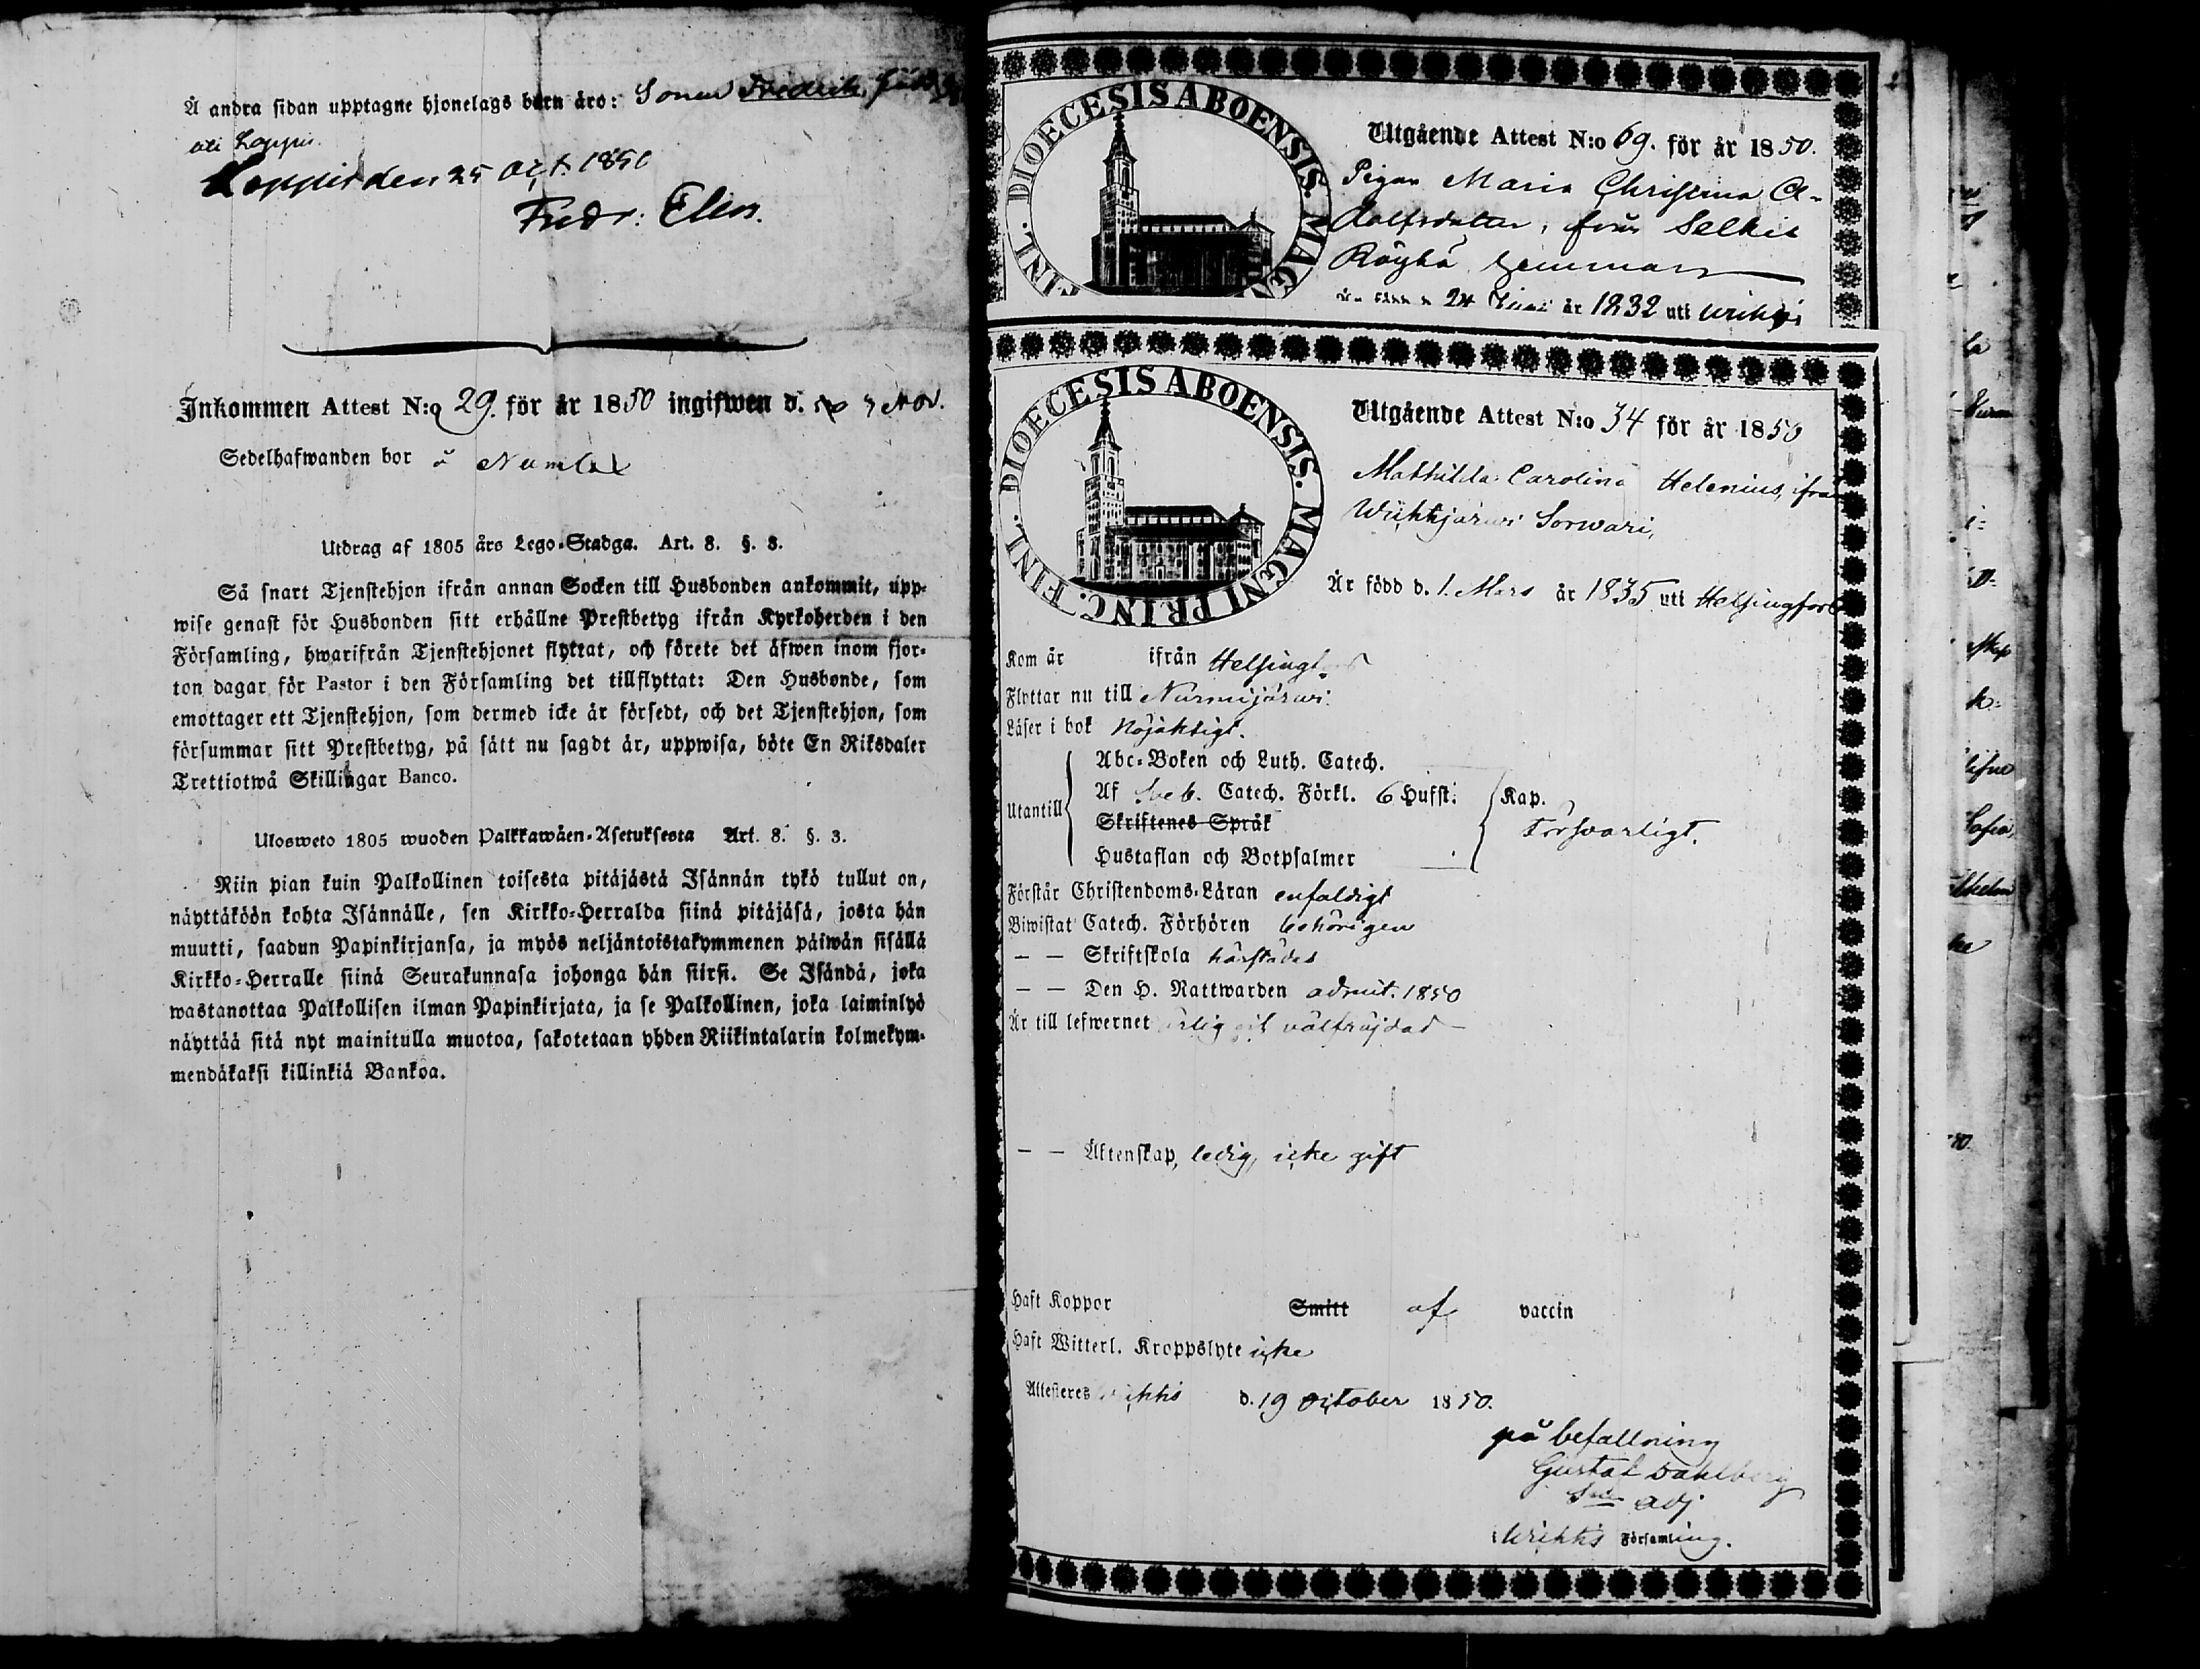 Å andra sidan upptagne hjonelags barn äro: Sonen Fredrik, född
uti Loppis.
Loppis den 25 Oct. 1850
Fredr: Elen.
Inkommen Attest N:o 29. för år 1850 ingifwen d. 7 Nov.
Sedelhafwanden bor å Numlax
Utdrag af 1805 års Lego-Stadga. Art. 8. §. 3.
Så snart Tjenstehjon ifrån annan Socken till Husbonden ankommit, upp-
wise genast för Husbonden sitt erhållne Prestbetyg ifrån Kyrkoherden i den
Församling, hwarifrån Tjenstehjonet flyttat, och förete det äfwen inom fjor-
ton dagar för Pastor i den Församling det tillflyttat: Den Husbonde, som
emottager ett Tjenstehjon, som dermed icke är försedt, och det Tjenstehjon, som
försummar sitt Prestbetyg, på sätt nu sagdt är, uppwisa, böte En Riksdaler
Trettiotwå Skillingar Banco.
Ulosweto 1805 wuoden Palkkawäen-Asetuksesta Art. 8. §. 3.
Niin pian kuin Palkollinen toisesta pitäjästä Isännän tykö tullut on,
näyttäköön kohta Isännälle, sen Kirkko-Herralda siinä pitäjäsä, josta hän
muutti, saadun Papinkirjansa, ja myös neljäntoistakymmenen päiwän sisällä
Kirkko-Herralle siinä Seurakunnasa johonga hän siirsi. Se Isändä, joka
wastanottaa Palkollisen ilman Papinkirjata, ja se Palkollinen, joka laiminlyö
näyttää sitä nyt mainitulla muotoa, sakotetaan yhden Riikintalarin kolmekym-
mendäkaksi killinkiä Bankoa.
DIOECESIS ABOENSIS. MAGNI FINL.
Utgående Attest N:o 69. för år 1850.
Pigan Maria Christina A-
dolfsdotter, från Selkis
Röykä hemman
Är född d. 24 Juni år 1832 uti Wichtis
DIOECESIS ABOENSIS. MAGNI PRINC. FINL.
Utgående Attest N:o 34 för år 1850
Mathilda Carolina Helenius, ifrån
Wichtijärwi Sorwari,
Är född d. 1. Mars år 1835 uti Helsingfors
Kom år ifrån Helsingfors
Flyttar nu till Nurmijärwi.
Läser i bok nöjaktigt.
Abc-Boken och Luth. Catech.
Af Sveb. Catech. Förkl. 6 Hufst. Kap.
Utantill Skriftenes Språk försvarligt.
Hustaflan och Botpsalmer
Förstår Christendoms-Läran enfaldigt
Biwistat Catech. Förhören behörigen
— — Skriftskola härstädes
— — Den H. Nattwarden admit. 1850
Är till lefwernet ärlig och välfräjdad
— — Äktenskap, ledig, icke gift
Haft Koppor Smitt af vaccin
Haft Witterl. Kroppslyte icke
Attesteres Wichtis d. 19 October 1850.
på befallning
Gustaf Dahlberg
adj
i Wichtis Församling.